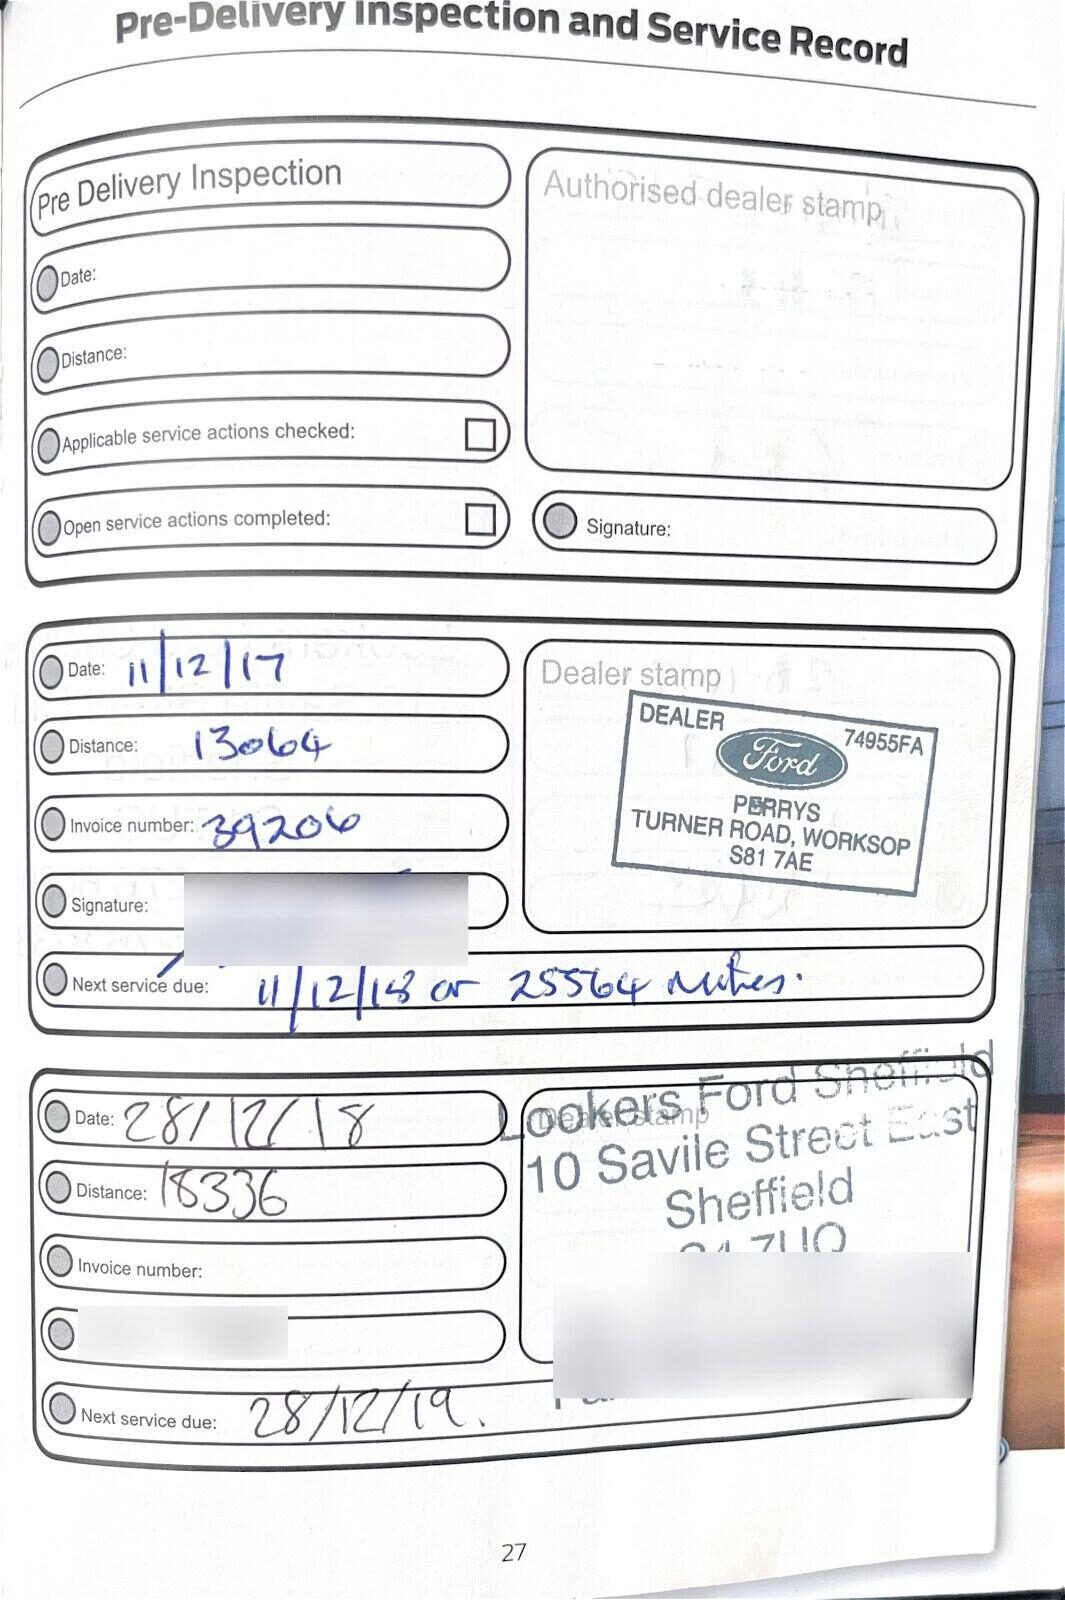 Pre-Delivery Inspection and Service Record
Pre Delivery Inspection
Date:
Distance:
Applicable service actions checked:
Open service actions completed:
Authorised dealer stamp
Signature:
Date: 11/12/17
Distance: 13064
Invoice number: 39206
Signature:
Next service due: 11/12/18 or 25564 Miles.
Dealer stamp
DEALER 74955FA
Ford
PERRYS
TURNER ROAD, WORKSOP
S81 7AE
Date: 28/12/18
Distance: 18336
Invoice number:
Next service due: 28/12/19.
Dealer stamp
Lookers Ford Sheffield
10 Savile Street East
Sheffield
27